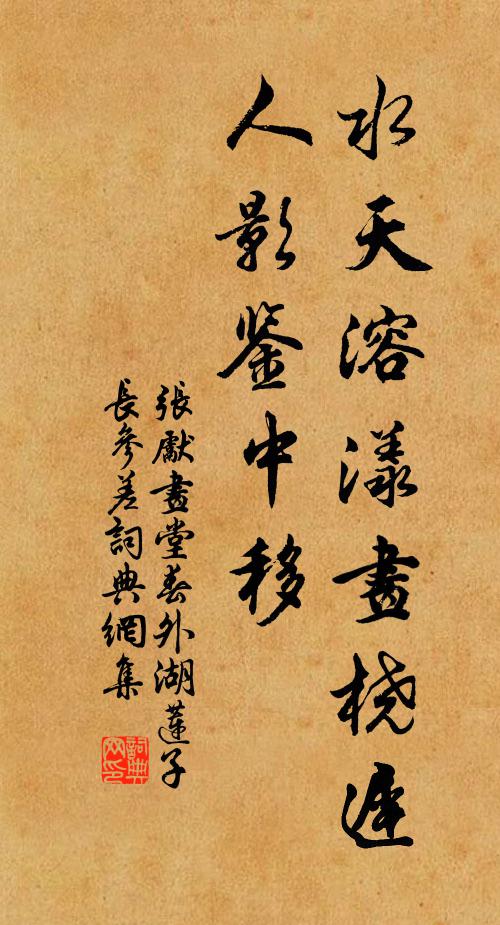 水天溶漾畫橈遲
人影鉴中移
張獻畫堂春外湖蓮子
長參差詞典網集
詞典
网印